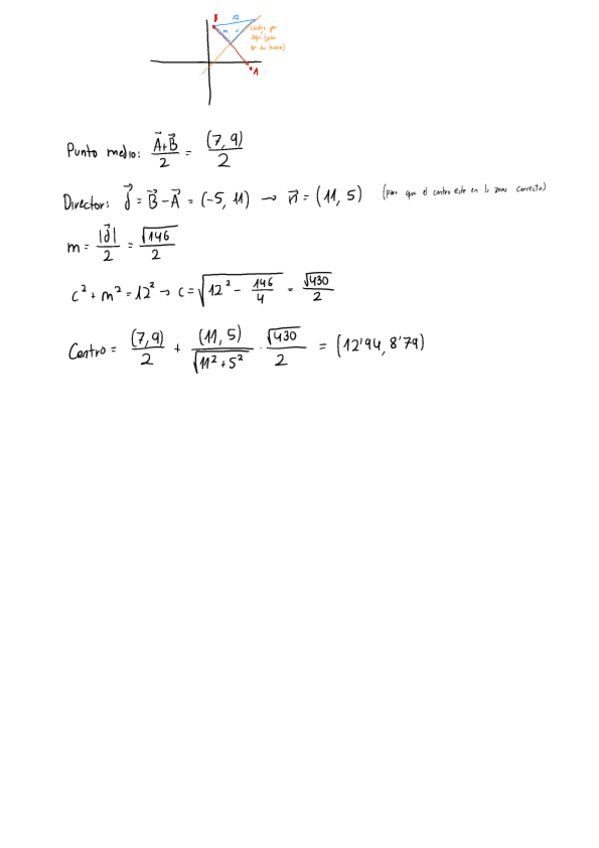 B 12
m c
Centro por
aquí (para
que sea horario)
A
Punto medio: (A⃗+B⃗)/2 = (7, 9)/2
Director: d⃗ = B⃗ - A⃗ = (-5, 11) → n⃗ = (11, 5) (para que el centro este en la zona correcta)
m = |d⃗|/2 = √146/2
c² + m² = 12² → c = √(12² - 146/4) = √430/2
Centro = (7, 9)/2 + (11, 5)/√(11² + 5²) · √430/2 = (12'94, 8'79)